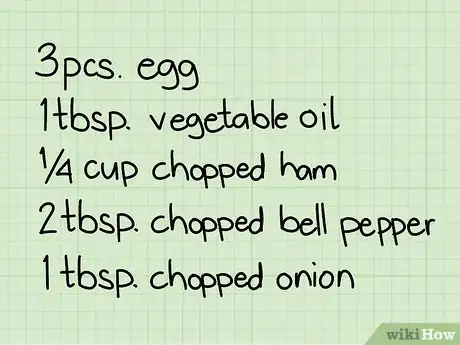 3pcs. egg
1tbsp. vegetable oil
1/4 cup chopped ham
2tbsp. chopped bell pepper
1tbsp. chopped onion
wikiHow